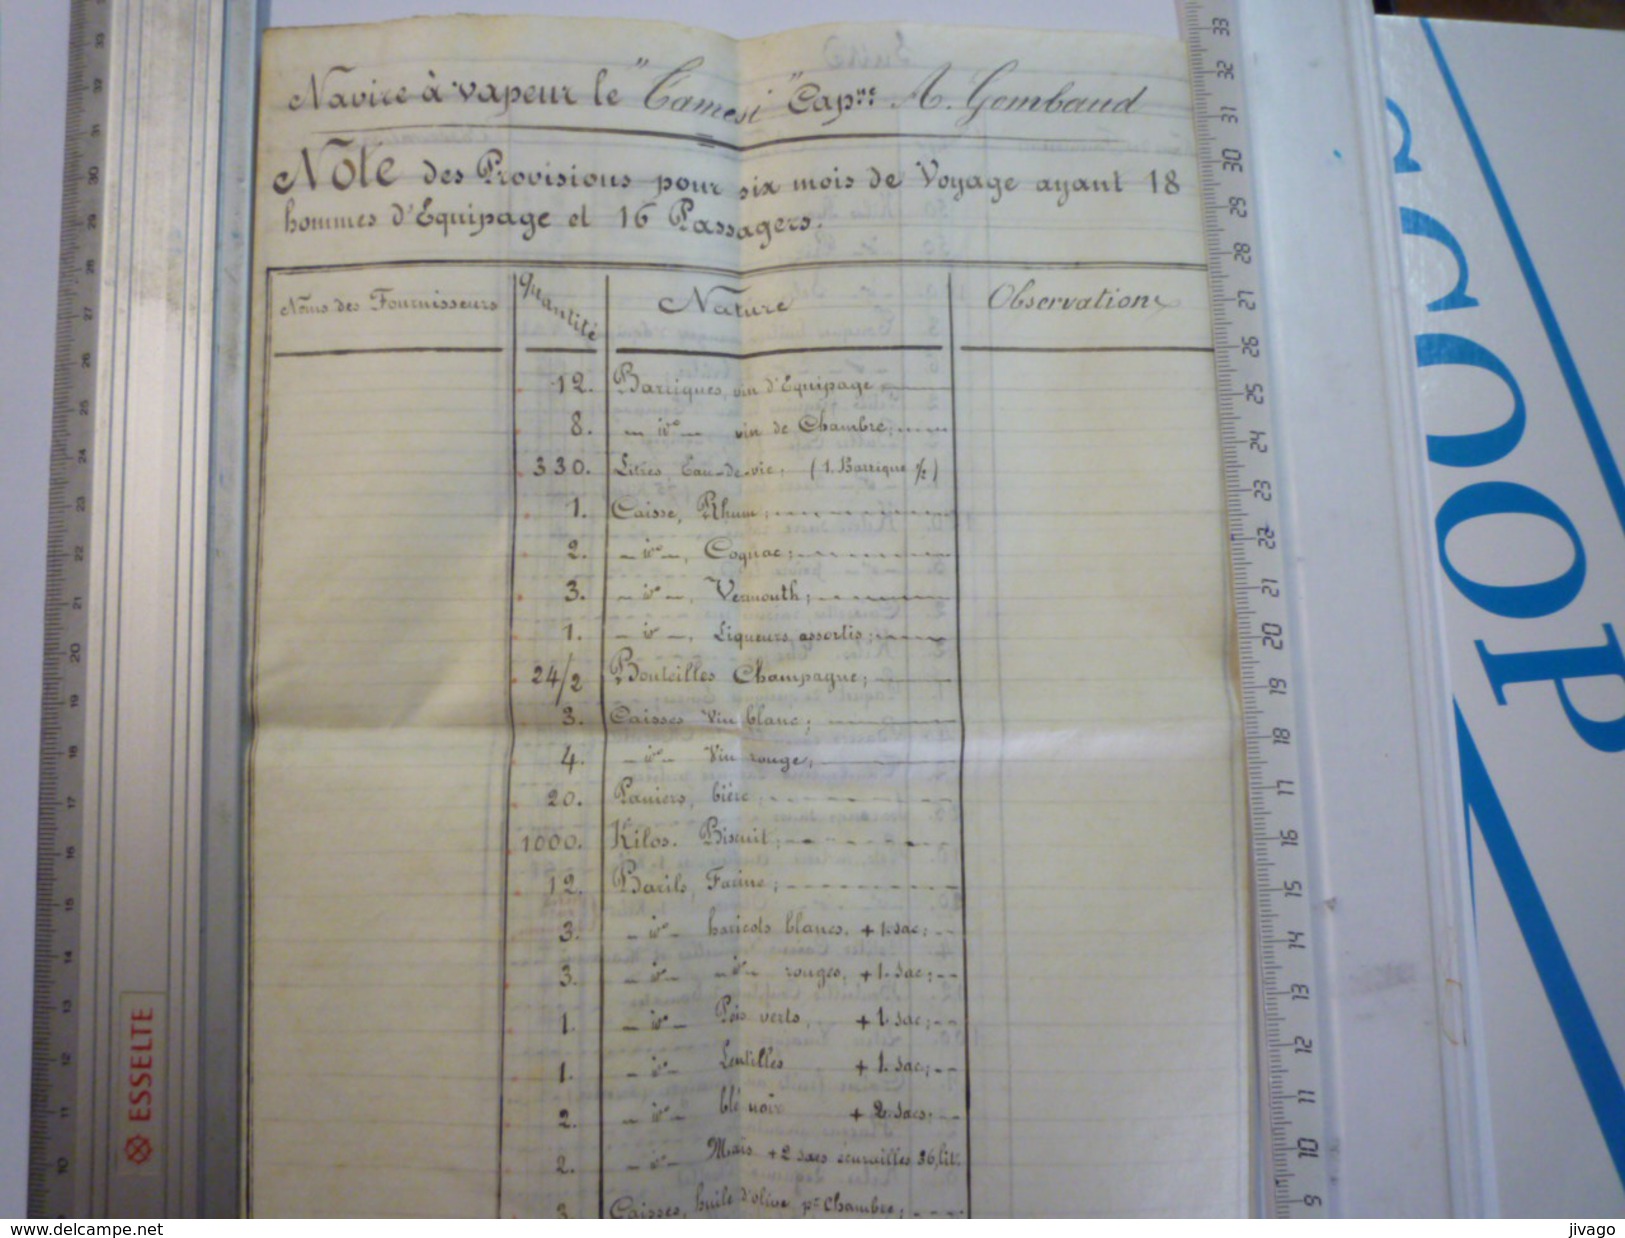 Navire à vapeur le "Camesi" Capne A. Gombaud
Note des Provisions pour six mois de Voyage ayant 18
hommes d'Equipage et 16 Passagers.
Noms des Fournisseurs Quantité Nature Observations
12. Barriques, vin d'Equipage
8. — id° — vin de Chambre;
330. Litres Eau-de-vie; (1. Barrique 1/2)
1. Caisse, Rhum;
2. — id° —, Cognac;
3. — id° —, Vermouth;
1. — id° —, Liqueurs assortis;
24/2 Bouteilles Champagne;
3. Caisses Vin blanc;
4. — id° — Vin rouge;
20. Paniers, bière;
1000. Kilos. Biscuit;
12. Barils, Farine;
3. — id° — haricots blancs, + 1. sac;
3. — id° — — id° — rouges, + 1. sac;
1. — id° — Pois verts, + 1. sac;
1. — id° — Lentilles + 1. sac;
2. — id° — blé noir + 2. sacs;
2. — id° — Maïs + 2 sacs 36, lit.
3. Caisses, huile d'olive pr Chambre;
ESSELTE
COOP
www.delcampe.net
jivago